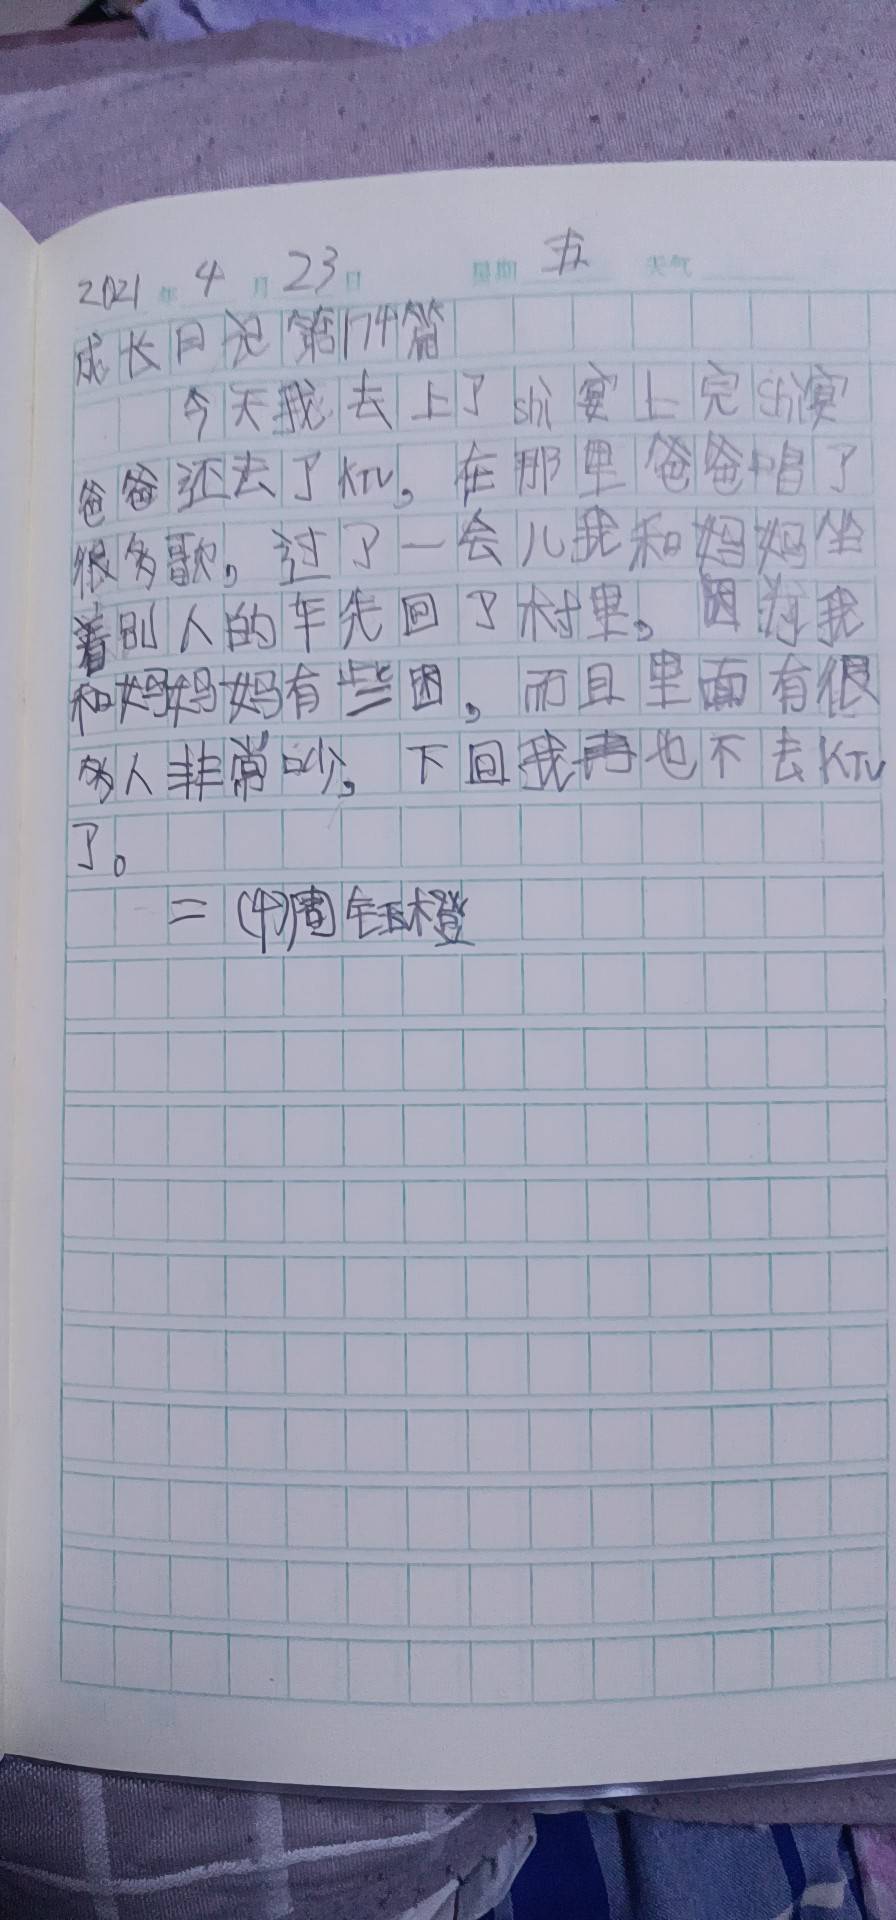 2021年4月23日 星期五 天气
成长日记第174篇
今天我去上了shì宴上完shì宴
爸爸还去了KTV。在那里爸爸唱了
很多歌。过了一会儿我和妈妈坐
着别人的车先回了村里。因为我
和妈妈妈妈有些困。而且里面有很
多人非常吵。下回我再也不去KTV
了。
二(4)周钰橙